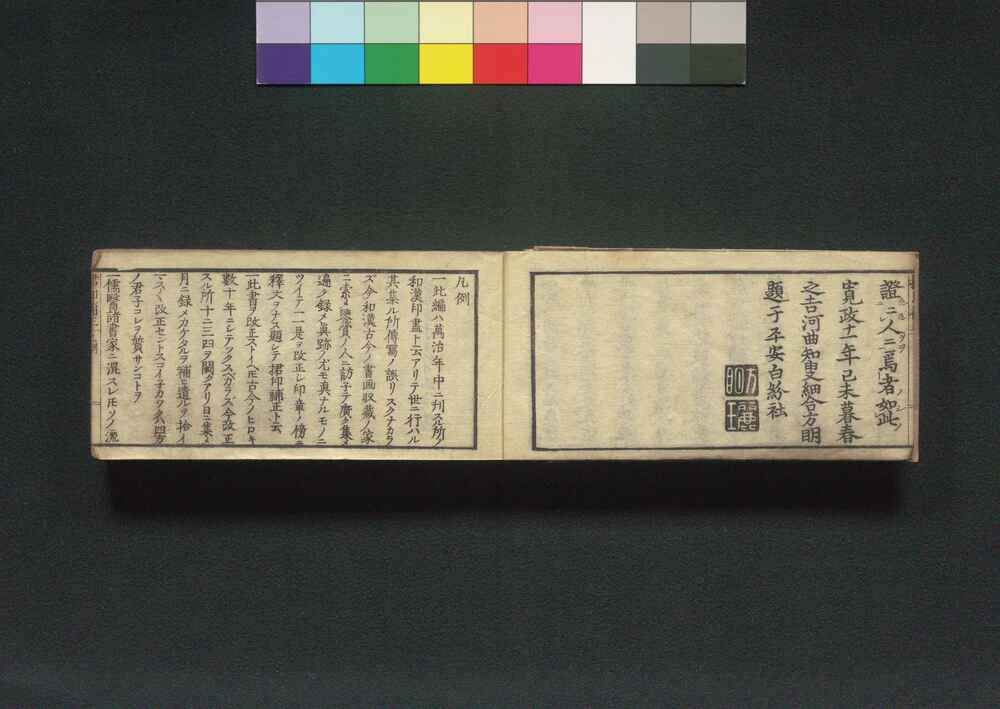 證二人ニ為者如此
寛政十一年己未暮春
之吉河曲知叟細合方明
題于平安白芥社
凡例
一此編ハ萬治年中ニ刊スル所ノ
和漢印盡ト云アリテ世ニ行ハル
其集ル所傳寫ノ誤リスクナカラ
ズ今和漢古今ノ書画収蔵ノ家
ニ索メ鑒賞ノ人ニ訪子テ廣ク集メ
遍ク録メ真跡ノ尤モ真ナルモノニ
ツイテ一一是ヲ改正シ印章ノ傍ラ
釋文ヲナス題シテ捃印補正ト云
一此書ヲ改正ストイヘ𪜈古今ノヒロキ
数十年ニシテツクスベカラス今改正
スル所十ニ三四ヲ闕クアリ日ニ集メ
月ニ録メカケタルヲ補ヒ遺レルヲ拾イ
マスマス改正セント
ノ君子コレヲ質サンコトヲ
一儒賢諸書家ニ混スレ𪜈ソノ